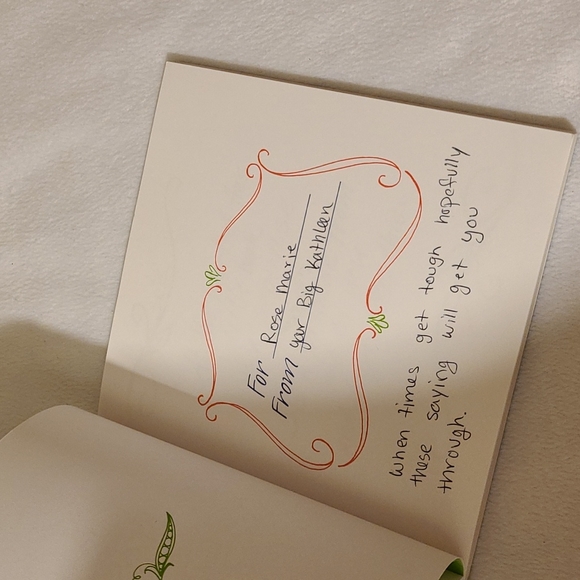 For Rose Marie
From yar Big Kathleen
When times get tough hopefully
these saying will get you
through.